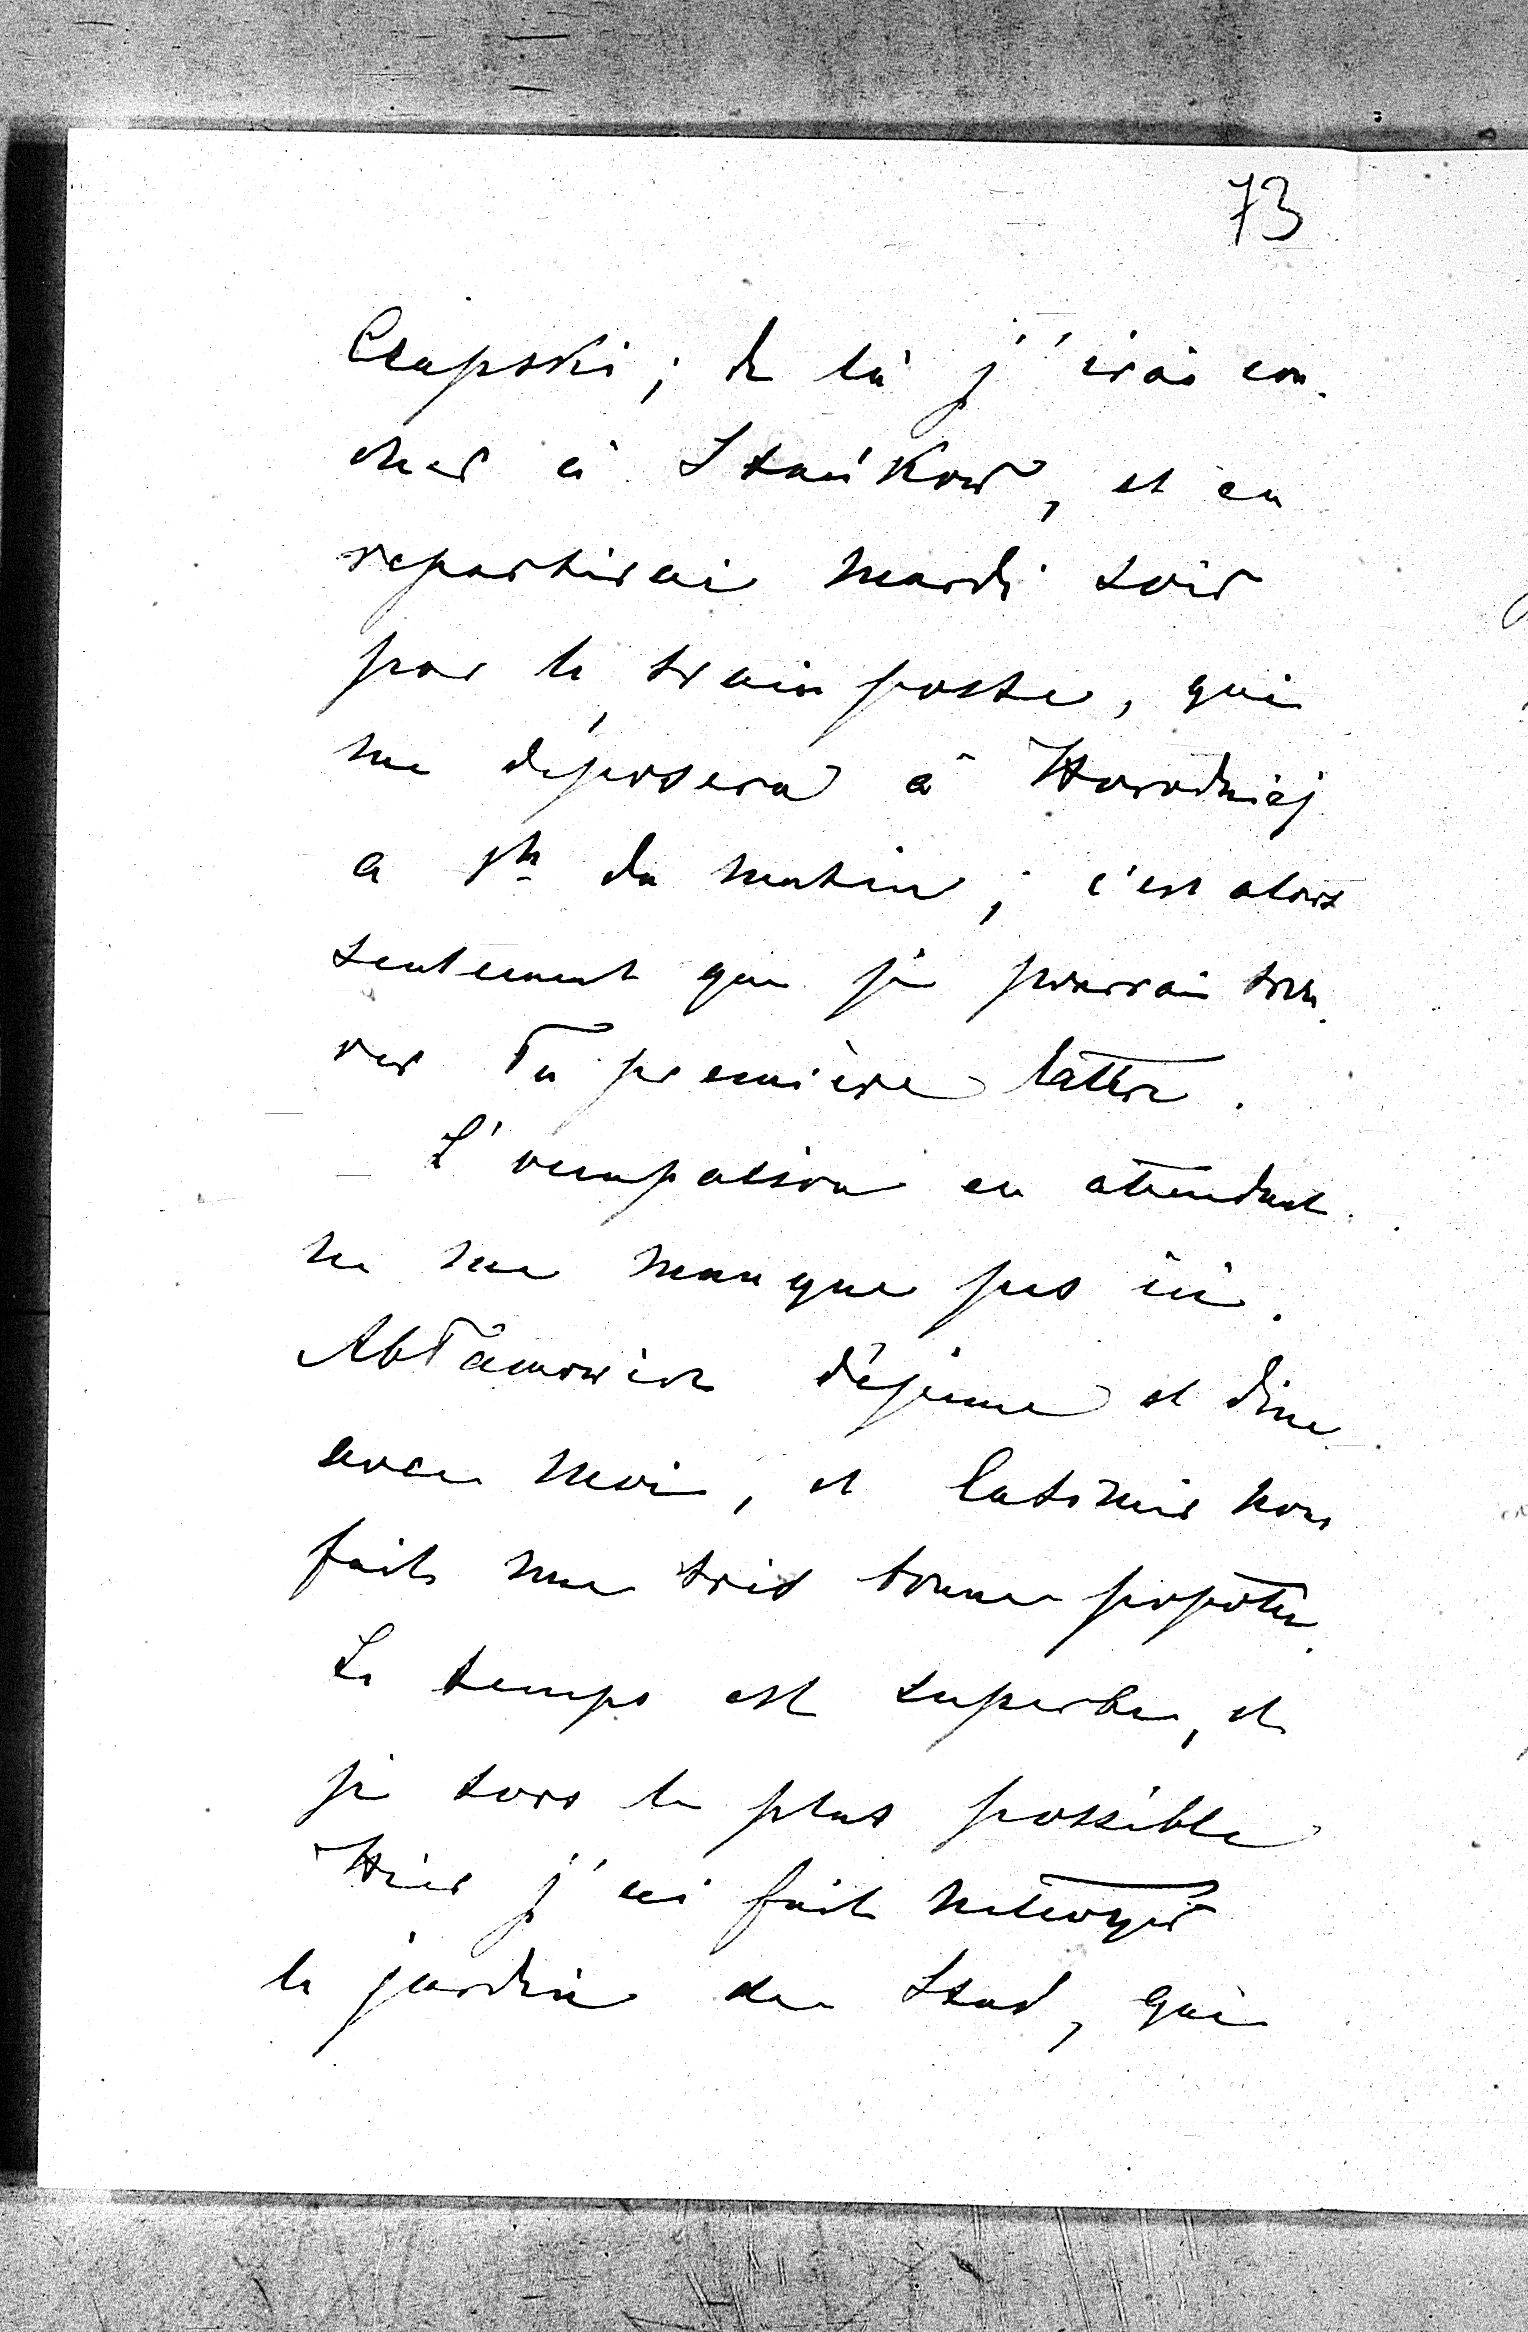 73
Czapski ; de là j'irai cou-
cher à Stańkow, et en
repartirai mardi soir
par le train poste, qui
me déposera à Horodziej
a 1h du matin ; c'est alors
seulement que je pourrai trou-
ver Ta première lettre.
L'occupation en attendant
ne me manque pas ici.
Abłamowicz déjeune et dine
avec moi, et Casimir nous
fait une très bonne popote.
Le temps est superbe, et
je sors le plus possible
Hier j'ai fait nettoyer
le jardin du Stad, qui